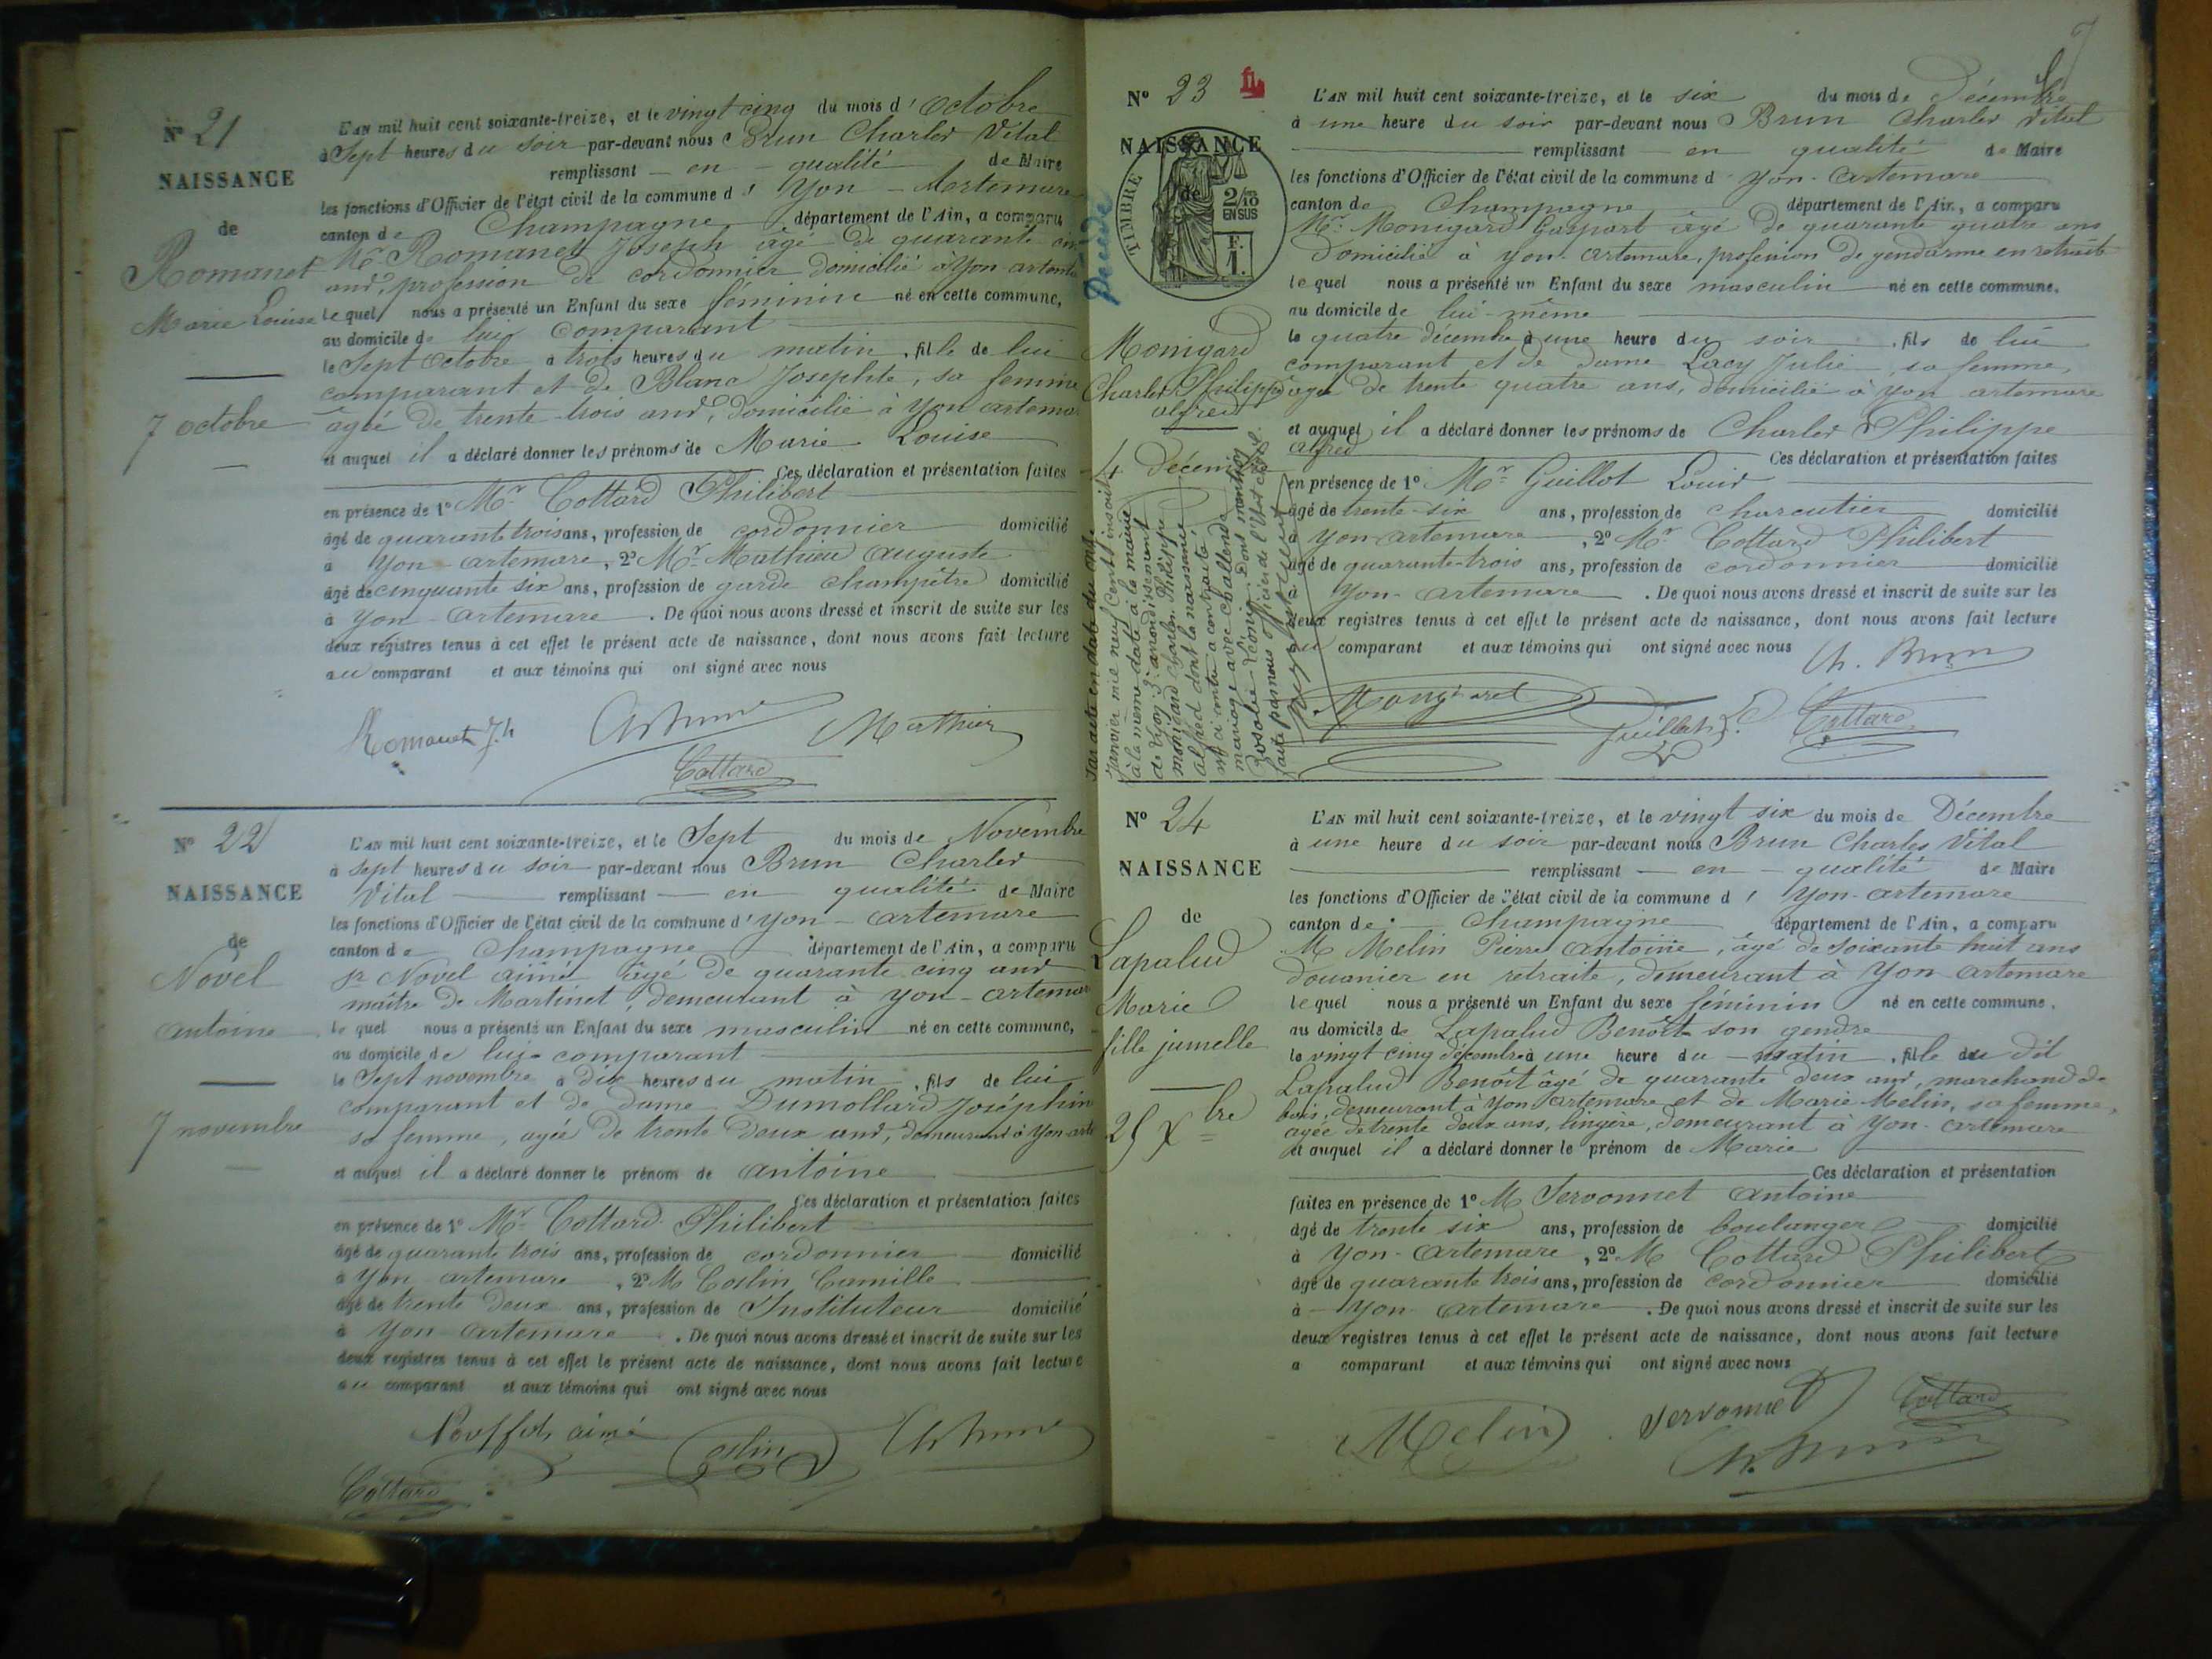 No 21
NAISSANCE
de
Romanet
Marie Louise
7 octobre
L'AN mil huit cent soixante-treize, et le vingt cinq du mois d' Octobre
à Sept heures du soir par-devant nous Brun Charles Vital
remplissant en qualité de Maire
les fonctions d'Officier de l'état civil de la commune d' Yon - Artemare
canton de Champagne département de l'Ain, a comparu
Mr Romanet Joseph âgé de quarante
ans, profession de cordonnier domicilié à Yon-artemare
le quel nous a présenté un Enfant du sexe féminin né en cette commune,
au domicile de lui comparant
le Sept octobre à trois heures du matin, fille de lui
comparant et de Blanc Josephte, sa femme
âgée de trente-trois ans, domicilié à Yon artemare
et auquel il a déclaré donner les prénoms de Marie Louise
Ces déclaration et présentation faites
en présence de 1o Mr Cottard Philibert
âgé de quarante trois ans, profession de cordonnier domicilié
à Yon-artemare, 2o Mr Mathieu Auguste
âgé de cinquante six ans, profession de garde champêtre domicilié
à Yon-artemare. De quoi nous avons dressé et inscrit de suite sur les
deux registres tenus à cet effet le présent acte de naissance, dont nous avons fait lecture
au comparant et aux témoins qui ont signé avec nous
Romanet Jh Mathieu
Cottard
No 22
NAISSANCE
de
Novel
antoine
7 novembre
L'AN mil huit cent soixante-treize, et le Sept du mois de Novembre
à sept heures du soir par-devant nous Brun Charles
Vital remplissant en qualité de Maire
les fonctions d'Officier de l'état civil de la commune d' Yon - artemare
canton de Champagne département de l'Ain, a comparu
sr Novel aimé âgé de quarante cinq ans
maître de Martinet, demeurant à Yon-artemare
le quel nous a présenté un Enfant du sexe masculin né en cette commune,
au domicile de lui comparant
le Sept novembre à dix heures du matin, fils de lui
comparant et de dame Dumollard Joséphine
sa femme, agée de trente deux ans, demeurant à Yon-arte
et auquel il a déclaré donner le prénom de antoine
Ces déclaration et présentation faites
en présence de 1o Mr Cottard Philibert
âgé de quarante trois ans, profession de cordonnier domicilié
à Yon artemare, 2o M Coslin Camille
âgé de trente deux ans, profession de Instituteur domicilié
à Yon-artemare. De quoi nous avons dressé et inscrit de suite sur les
deux registres tenus à cet effet le présent acte de naissance, dont nous avons fait lecture
au comparant et aux témoins qui ont signé avec nous
aimé Coslin
Cottard
7
No 23
NAISSANCE
de
TIMBRE
2/10
EN SUS
F.
1.
Monigard
Charles Philippe
alfred
4 Décembre
L'AN mil huit cent soixante-treize, et le six du mois de Décembre
à une heure du soir par-devant nous Brun Charles Vital
remplissant en qualité de Maire
les fonctions d'Officier de l'état civil de la commune d' Yon-Artemare
canton de Champagne département de l'Ain, a comparu
Mr Monigard Gaspart âgé de quarante quatre ans
Domicilié à Yon-artemare, profession de gendarme en retraite
le quel nous a présenté un Enfant du sexe masculin né en cette commune,
au domicile de lui-même
le quatre décembre à une heure du soir, fils de lui
comparant et de dame Lacy Julie, sa femme,
agée de trente quatre ans, domicilié à Yon artemare
et auquel il a déclaré donner les prénoms de Charles Philippe
alfred
Ces déclaration et présentation faites
en présence de 1o Mr Guillot Louis
âgé de trente-six ans, profession de charcutier domicilié
à Yon artemare, 2o Mr Cottard Philibert
âgé de quarante-trois ans, profession de cordonnier domicilié
à Yon-artemare. De quoi nous avons dressé et inscrit de suite sur les
deux registres tenus à cet effet le présent acte de naissance, dont nous avons fait lecture
au comparant et aux témoins qui ont signé avec nous Ch. Brun
Guillot L. Cottard
Par acte en date du onze
Janvier mil neuf cent inscrit
à la même date à la mairie
de Lyon 3e arrondissement
Monigard Charles Philippe
Alfred dont la naissance
est ci contre a contracté
mariage avec Ballende
Rosalie Léonie. Dont mention
faite par nous Officier de l'Etat civil.
No 24
NAISSANCE
de
Lapalud
Marie
fille jumelle
25 Xbre
L'AN mil huit cent soixante-treize, et le vingt six du mois de Décembre
à une heure du soir par-devant nous Brun Charles Vital
remplissant en qualité de Maire
les fonctions d'Officier de l'état civil de la commune d' Yon-artemare
canton de Champagne département de l'Ain, a comparu
M Melin Pierre Antoine, âgé de soixante huit ans
douanier en retraite, demeurant à Yon artemare
le quel nous a présenté un Enfant du sexe féminin né en cette commune,
au domicile de Lapalud Benoît son gendre
le vingt cinq décembre à une heure du matin, fille du dit
Lapalud Benoît âgé de quarante deux ans, marchand de
bois, demeurant à Yon artemare et de Marie Melin, sa femme,
agée de trente deux ans, lingère, demeurant à Yon-artemare
et auquel il a déclaré donner le prénom de Marie
Ces déclaration et présentation
faites en présence de 1o M Servonnet Antoine
âgé de trente six ans, profession de boulanger domicilié
à Yon-artemare, 2o M Cottard Philibert
âgé de quarante trois ans, profession de cordonnier domicilié
à Yon artemare. De quoi nous avons dressé et inscrit de suite sur les
deux registres tenus à cet effet le présent acte de naissance, dont nous avons fait lecture
a comparant et aux témoins qui ont signé avec nous
Melin Servonnet Cottard
Ch. Brun